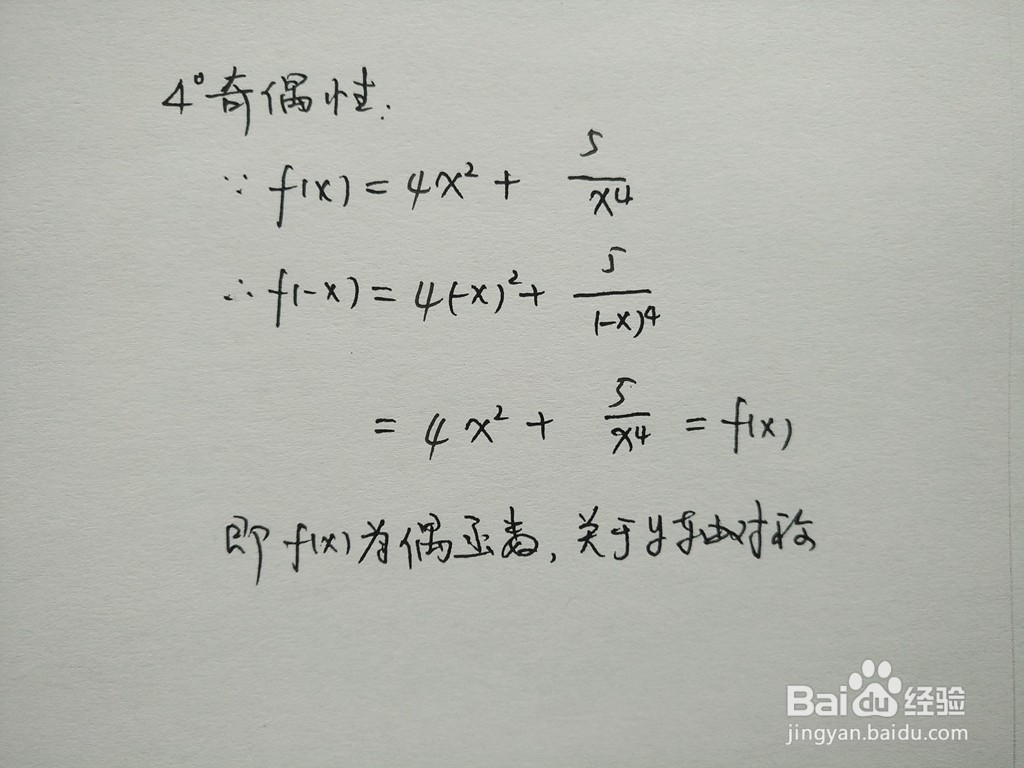 4°奇偶性.
∵ f(x) = 4x² + 5/x⁴
∴ f(-x) = 4(-x)² + 5/(-x)⁴
= 4x² + 5/x⁴ = f(x)
即 f(x) 为偶函数, 关于y轴对称
Bai du 经验
jingyan.baidu.com